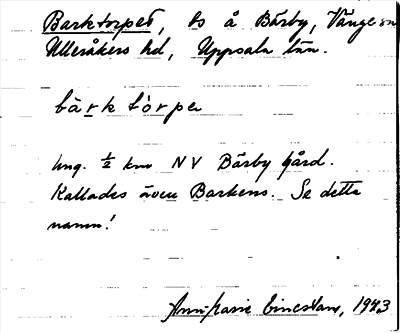 Barktorpet, ls å Bärby, Vänge sn
Ulleråkers hd, Uppsala län.
bàrk tòrpe
Ung. ½ km NV Bärby gård.
Kallades även Barkens. Se detta
namn!
Ann-Marie 1943